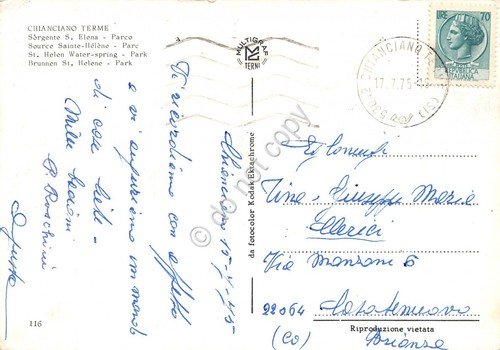 CHIANCIANO TERME
Sorgente S. Elena - Parco
Source Sainte-Hélène - Parc
St. Helen Water-spring - Park
Brunnen St. Helene - Park
MULTIGRAF
TERNI
LIRE 70
REPUBBLICA
ITALIANA
CHIANCIANO TERME
17.7.75
53042
(SI)
Chianciano 15-7-75
Vi ricordiamo con affetto
e vi auguriamo un mondo
di cose belle -
Mille bacioni
do not copy
da fotocolor Kodak Ektachrome
Eg/Coniugi
Tina - Giuseppe Maria
Clerici
Via Manzoni 6
22064 Casatenovo
(Co) Brianza
116
Riproduzione vietata